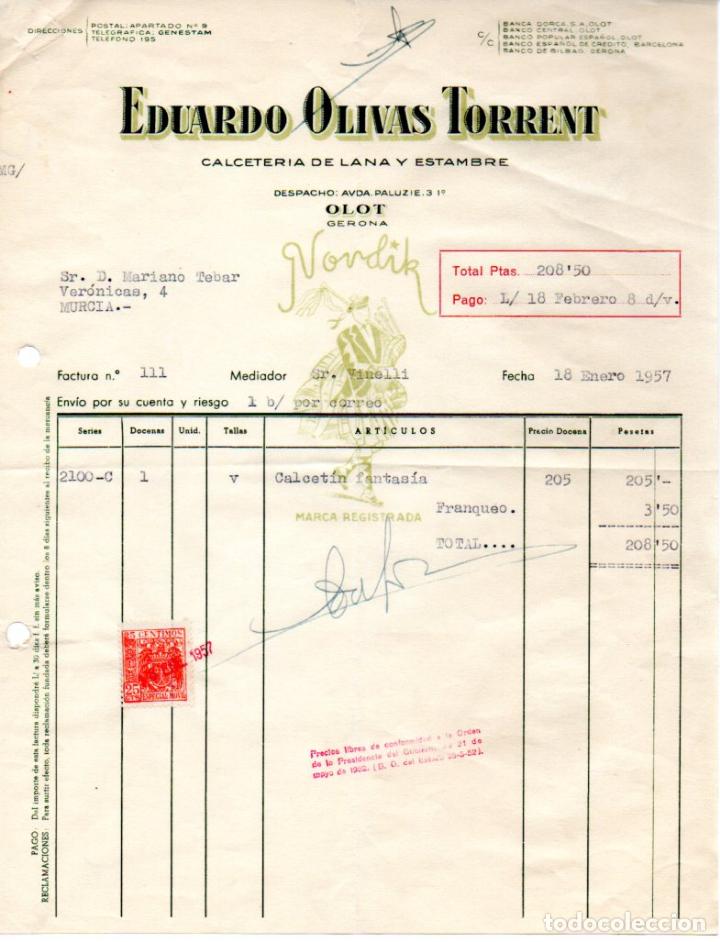 DIRECCIONES
POSTAL: APARTADO Nº 9
TELEGRAFICA: GENESTAM
TELEFONO 195
C/C
BANCA DORCA, S.A, OLOT
BANCO CENTRAL, OLOT
BANCO POPULAR ESPAÑOL, OLOT
BANCO ESPAÑOL DE CRÉDITO, BARCELONA
BANCO DE BILBAO, GERONA
EDUARDO OLIVAS TORRENT
CALCETERIA DE LANA Y ESTAMBRE
MG/
DESPACHO: AVDA. PALUZIE, 3 1º
OLOT
GERONA
Nordik
Sr. D. Mariano Tebar
Verónicas, 4
MURCIA.-
Total Ptas. 208'50
Pago: L/ 18 Febrero 8 d/v.
Factura n.º 111 Mediador Sr. Vinelli Fecha 18 Enero 1957
Envío por su cuenta y riesgo 1 b/ por correo
Series Docenas Unid. Tallas ARTÍCULOS Precio Docena Pesetas
2100-C 1 v Calcetín fantasía 205 205'-
Franqueo. 3'50
MARCA REGISTRADA
TOTAL.... 208'50
25 CENTIMOS
25 CTS
ESPECIAL MOVIL
1957
Precios libres de conformidad a la Orden
de la Presidencia del Gobierno de 21 de
mayo de 1952. (B. O. del Estado
PAGO: Del importe de esta factura dispondré L/ a 30 días f. f. sin más aviso.
RECLAMACIONES: Para surtir efecto, toda reclamación fundada deberá formularse dentro los 8 días siguientes al recibo de la mercancía
todocoleccion